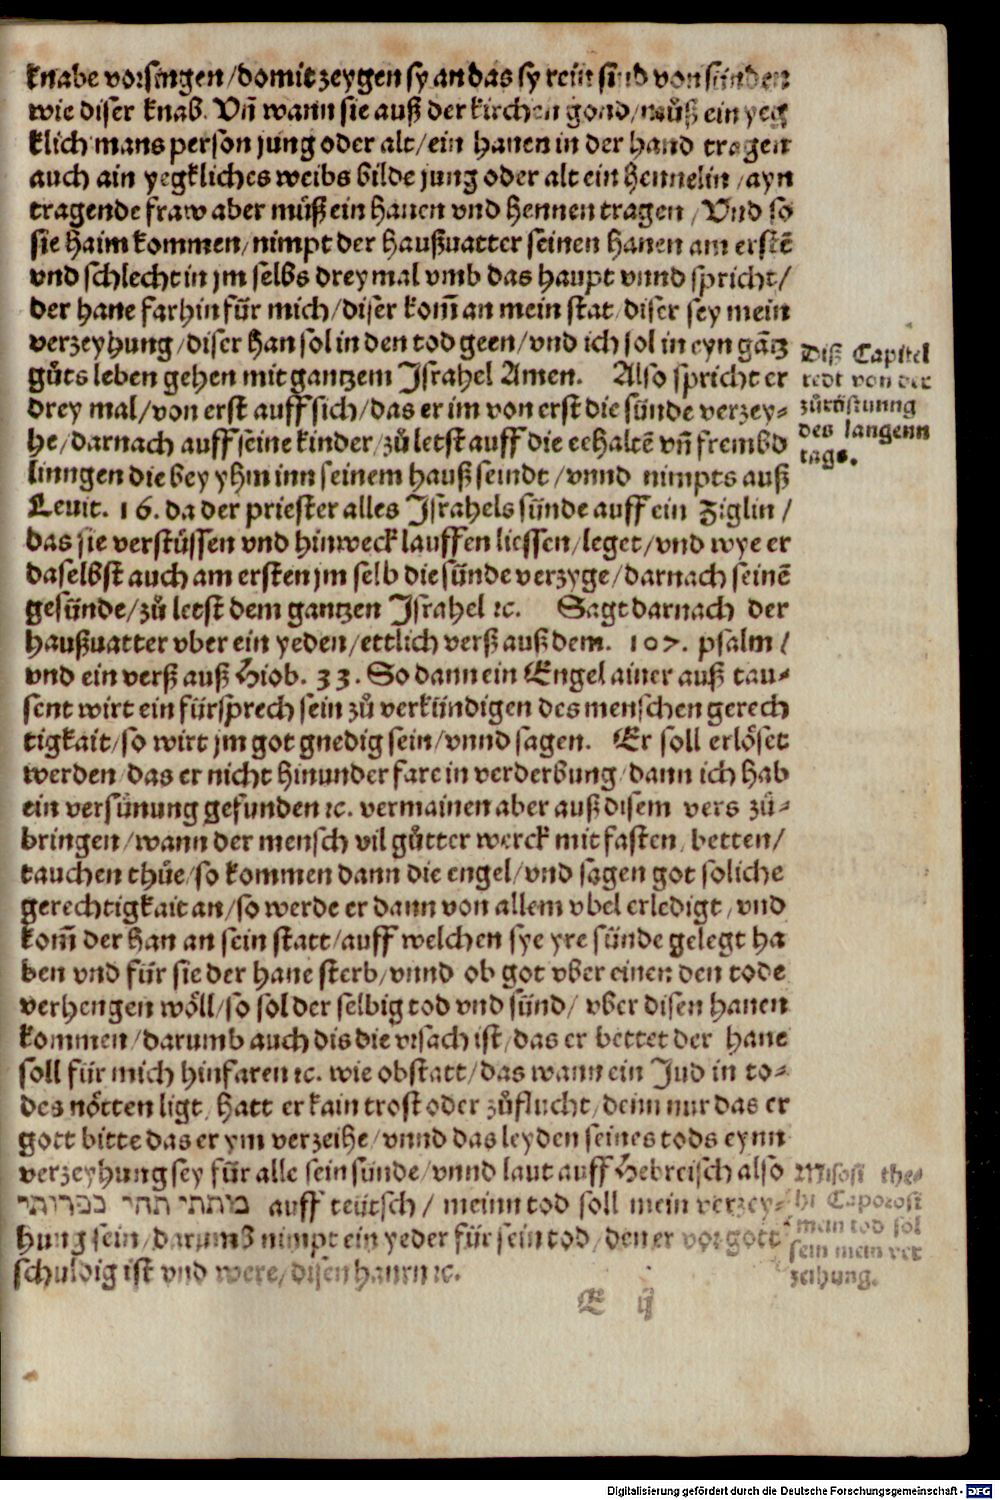 knabe vorsingen / domit zeygen sy an das sy rein sind von sünden
wie diser knab. Vñ wann sie auß der kirchen gond / můß ein yeg
klich mans person jung oder alt / ein hanen in der hand tragen
auch ain yegkliches weibs bilde jung oder alt ein hennelin / ayn
tragende fraw aber můß ein hanen vnd hennen tragen / Vnd so
sie haim kommen / nimpt der haußuatter seinen hanen am erstē
vnd schlecht in jm selbs drey mal vmb das haupt vnnd spricht /
der hane far hin für mich / diser kom̄ an mein stat / diser sey mein
verzeyhung / diser han sol in den tod geen / vnd ich sol in eyn gātz
gůts leben gehen mit gantzem Jsrahel Amen. Also spricht er
drey mal / von erst auff sich / das er im von erst die sünde verzey-
he / darnach auff seine kinder / zů letst auff die eehaltē vñ frembd
linngen die bey yhm inn seinem hauß seindt / vnnd nimpts auß
Leuit. 16. da der priester alles Jsrahels sünde auff ein Ziglin /
das sie verstůssen vnd hinweck lauffen liessen / leget / vnd wye er
daselbst auch am ersten jm selb die sünde verzyge / darnach seinē
gesünde / zů letst dem gantzen Jsrahel ꝛc. Sagt darnach der
haußuatter vber ein yeden / ettlich verß auß dem. 107. psalm /
vnd ein verß auß Hiob. 33. So dann ein Engel ainer auß tau-
sent wirt ein fürsprech sein zů verkündigen des menschen gerech
tigkait / so wirt jm got gnedig sein / vnnd sagen. Er soll erlöset
werden / das er nicht hinunder fare in verderbung / dann ich hab
ein versünung gefunden ꝛc. vermainen aber auß disem vers zů-
bringen / wann der mensch vil gůtter werck mit fasten / betten /
tauchen thůe / so kommen dann die engel / vnd sagen got soliche
gerechtigkait an / so werde er dann von allem vbel erledigt / vnd
kom̄ der han an sein statt / auff welchen sye yre sünde gelegt ha
ben vnd für sie der hane sterb / vnnd ob got vber einen den tode
verhengen wöll / so sol der selbig tod vnd sünd / vber disen hanen
kommen / darumb auch dis die vrsach ist / das er bettet der hane
soll für mich hinfaren ꝛc. wie obstatt / das wann ein Jud in to-
des nötten ligt / hatt er kain trost oder zůflucht / denn nur das er
gott bitte das er ym verzeihe / vnnd das leyden seines tods eynn
verzeyhung sey für alle sein sünde / vnnd laut auff Hebreisch also
מיתתי תהי כפרותי auff teütsch / meinn tod soll mein verzey-
hung sein / darumb nimpt ein yeder für sein tod / den er vor gott
schuldig ist vnd were / disen hanen ꝛc.
E ij
Diß Capitel
redt von der
zůröstunng
des langenn
tags.
Misosi the-
hi Caporosi
man tod sol
sein mein ver
zeihung.
Digitalisierung gefördert durch die Deutsche Forschungsgemeinschaft - DFG